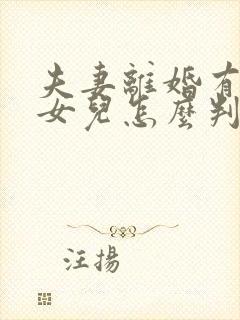 夫妻離婚有
女兒怎麼判
汪揚